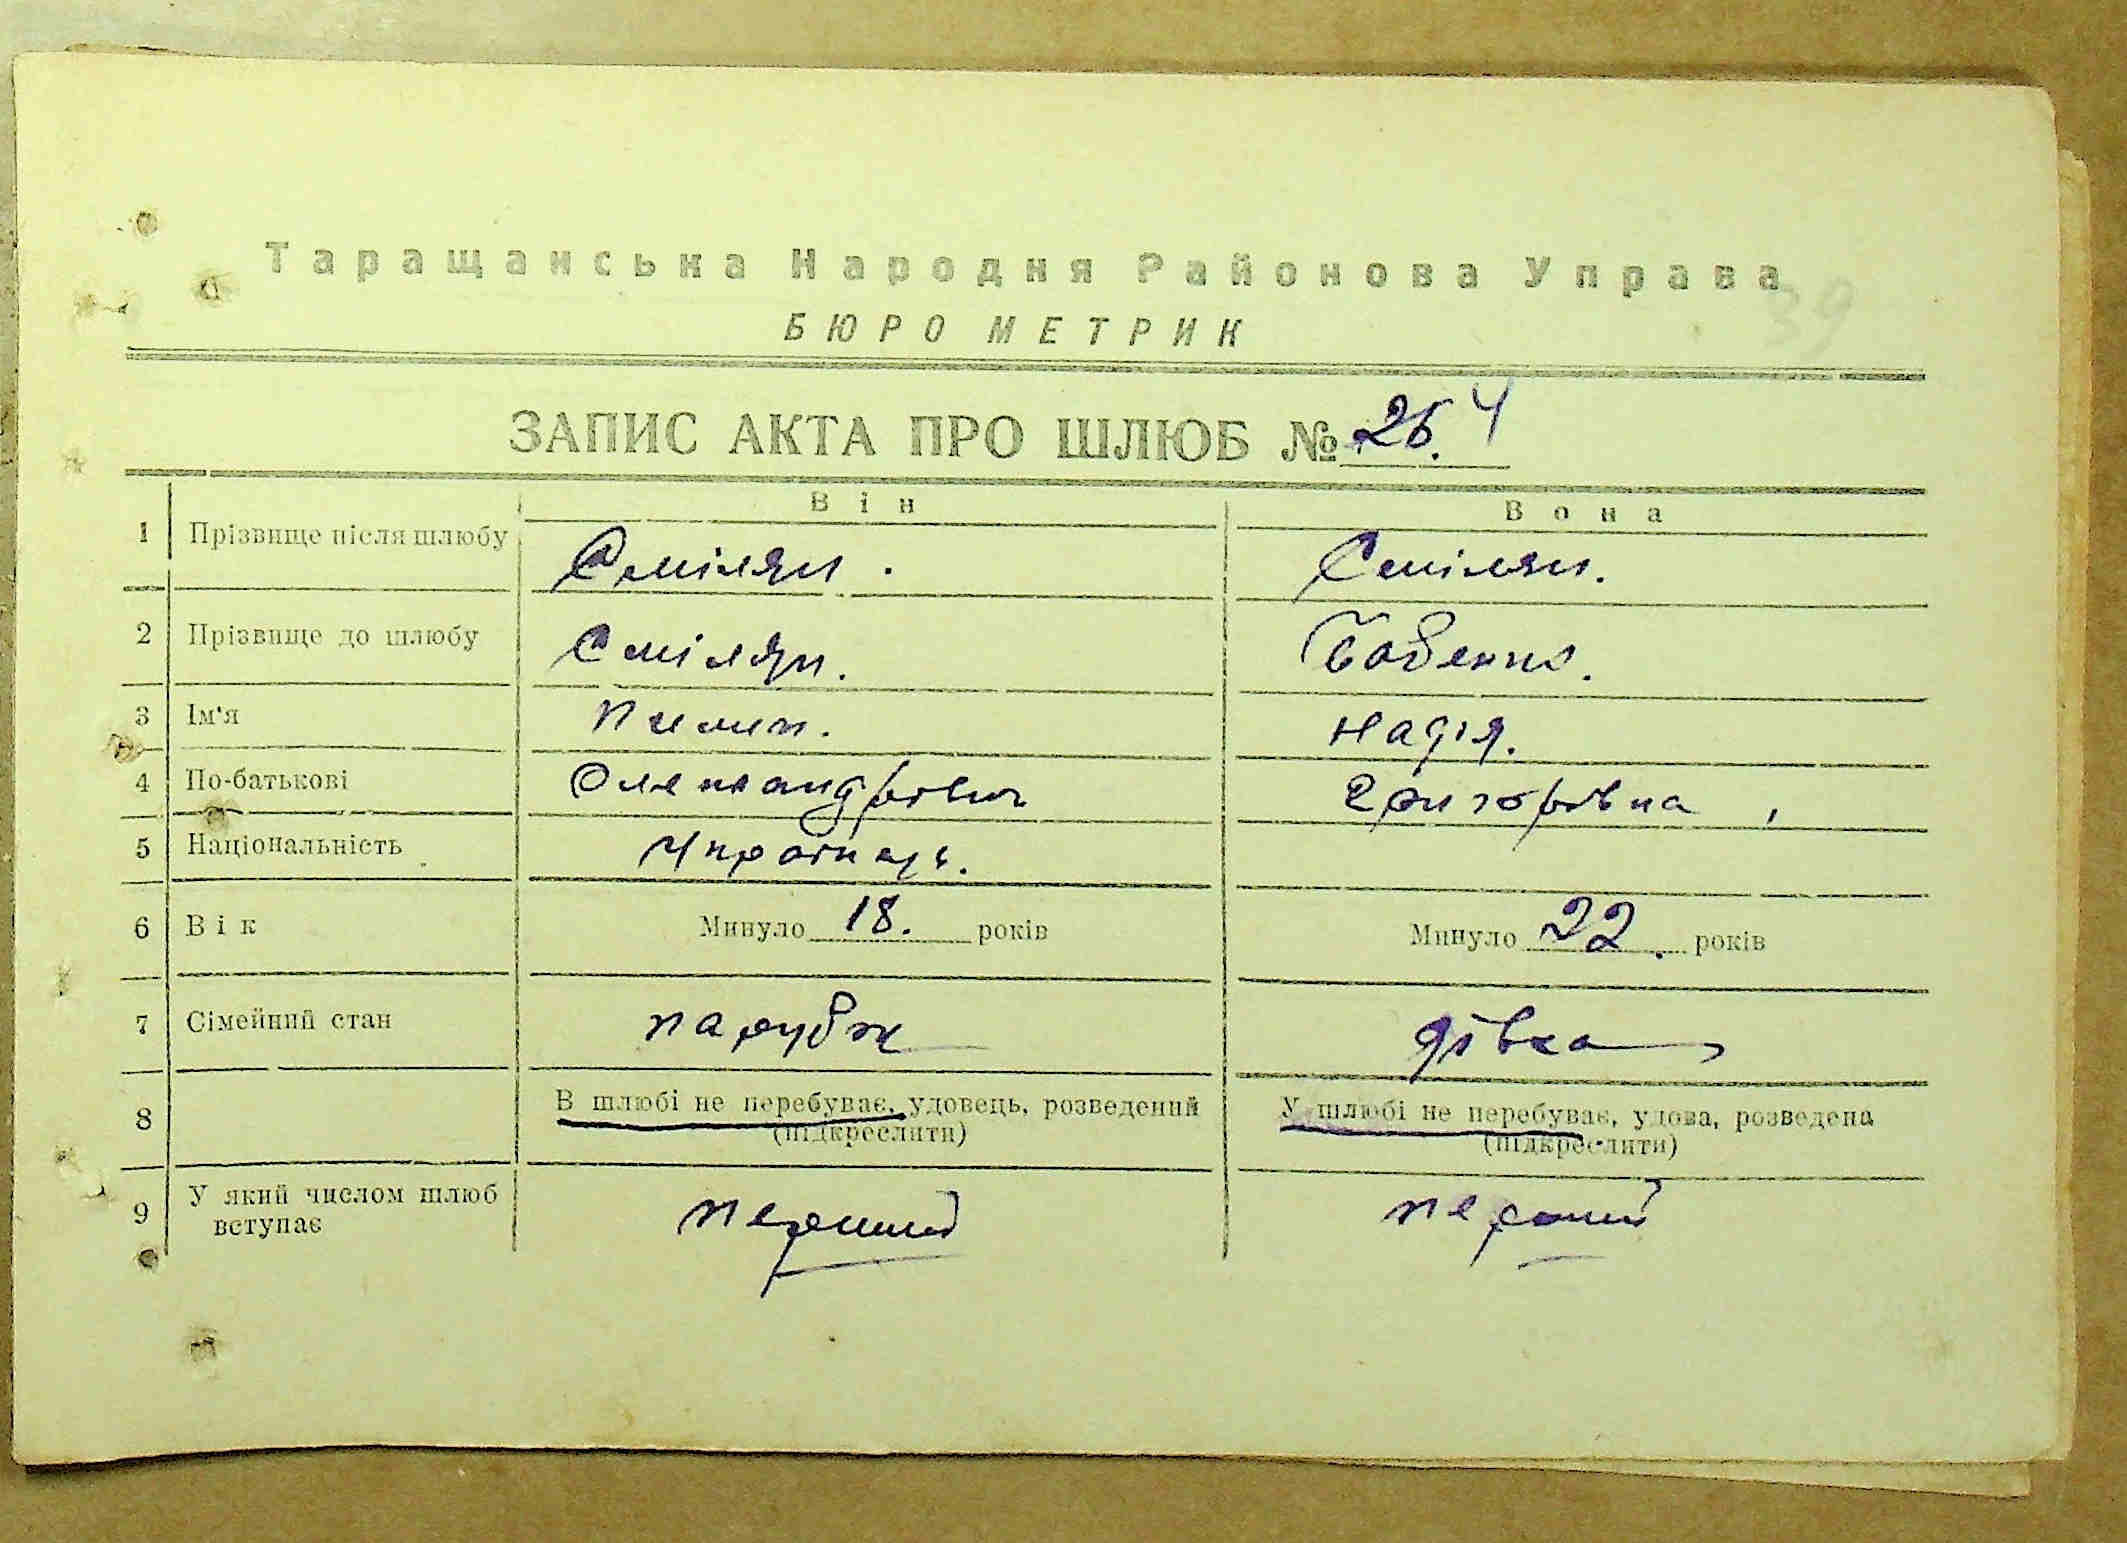 Таращанська Народня Районова Управа
39
БЮРО МЕТРИК
ЗАПИС АКТА ПРО ШЛЮБ № 26.4
Він Вона
1 Прізвище після шлюбу Сміляч. Сміляч.
2 Прізвище до шлюбу Сміляч. Бабенко.
3 Ім'я Пимен. Надія.
4 По-батькові Олександрович Григорівна,
5 Національність Українець.
6 Вік Минуло 18. років Минуло 22. років
7 Сімейний стан парубок дівка
8 В шлюбі не перебуває, удовець, розведений У шлюбі не перебуває, удова, розведена
(підкреслити) (підкреслити)
9 У який числом шлюб перший перший
вступає